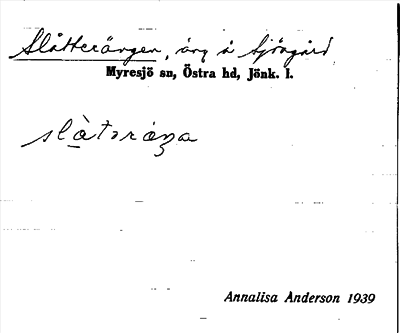 Slåtterängen, äng å Sjögård
Myresjö sn, Östra hd, Jönk. l.
slàtəräŋa
Annalisa Anderson 1939